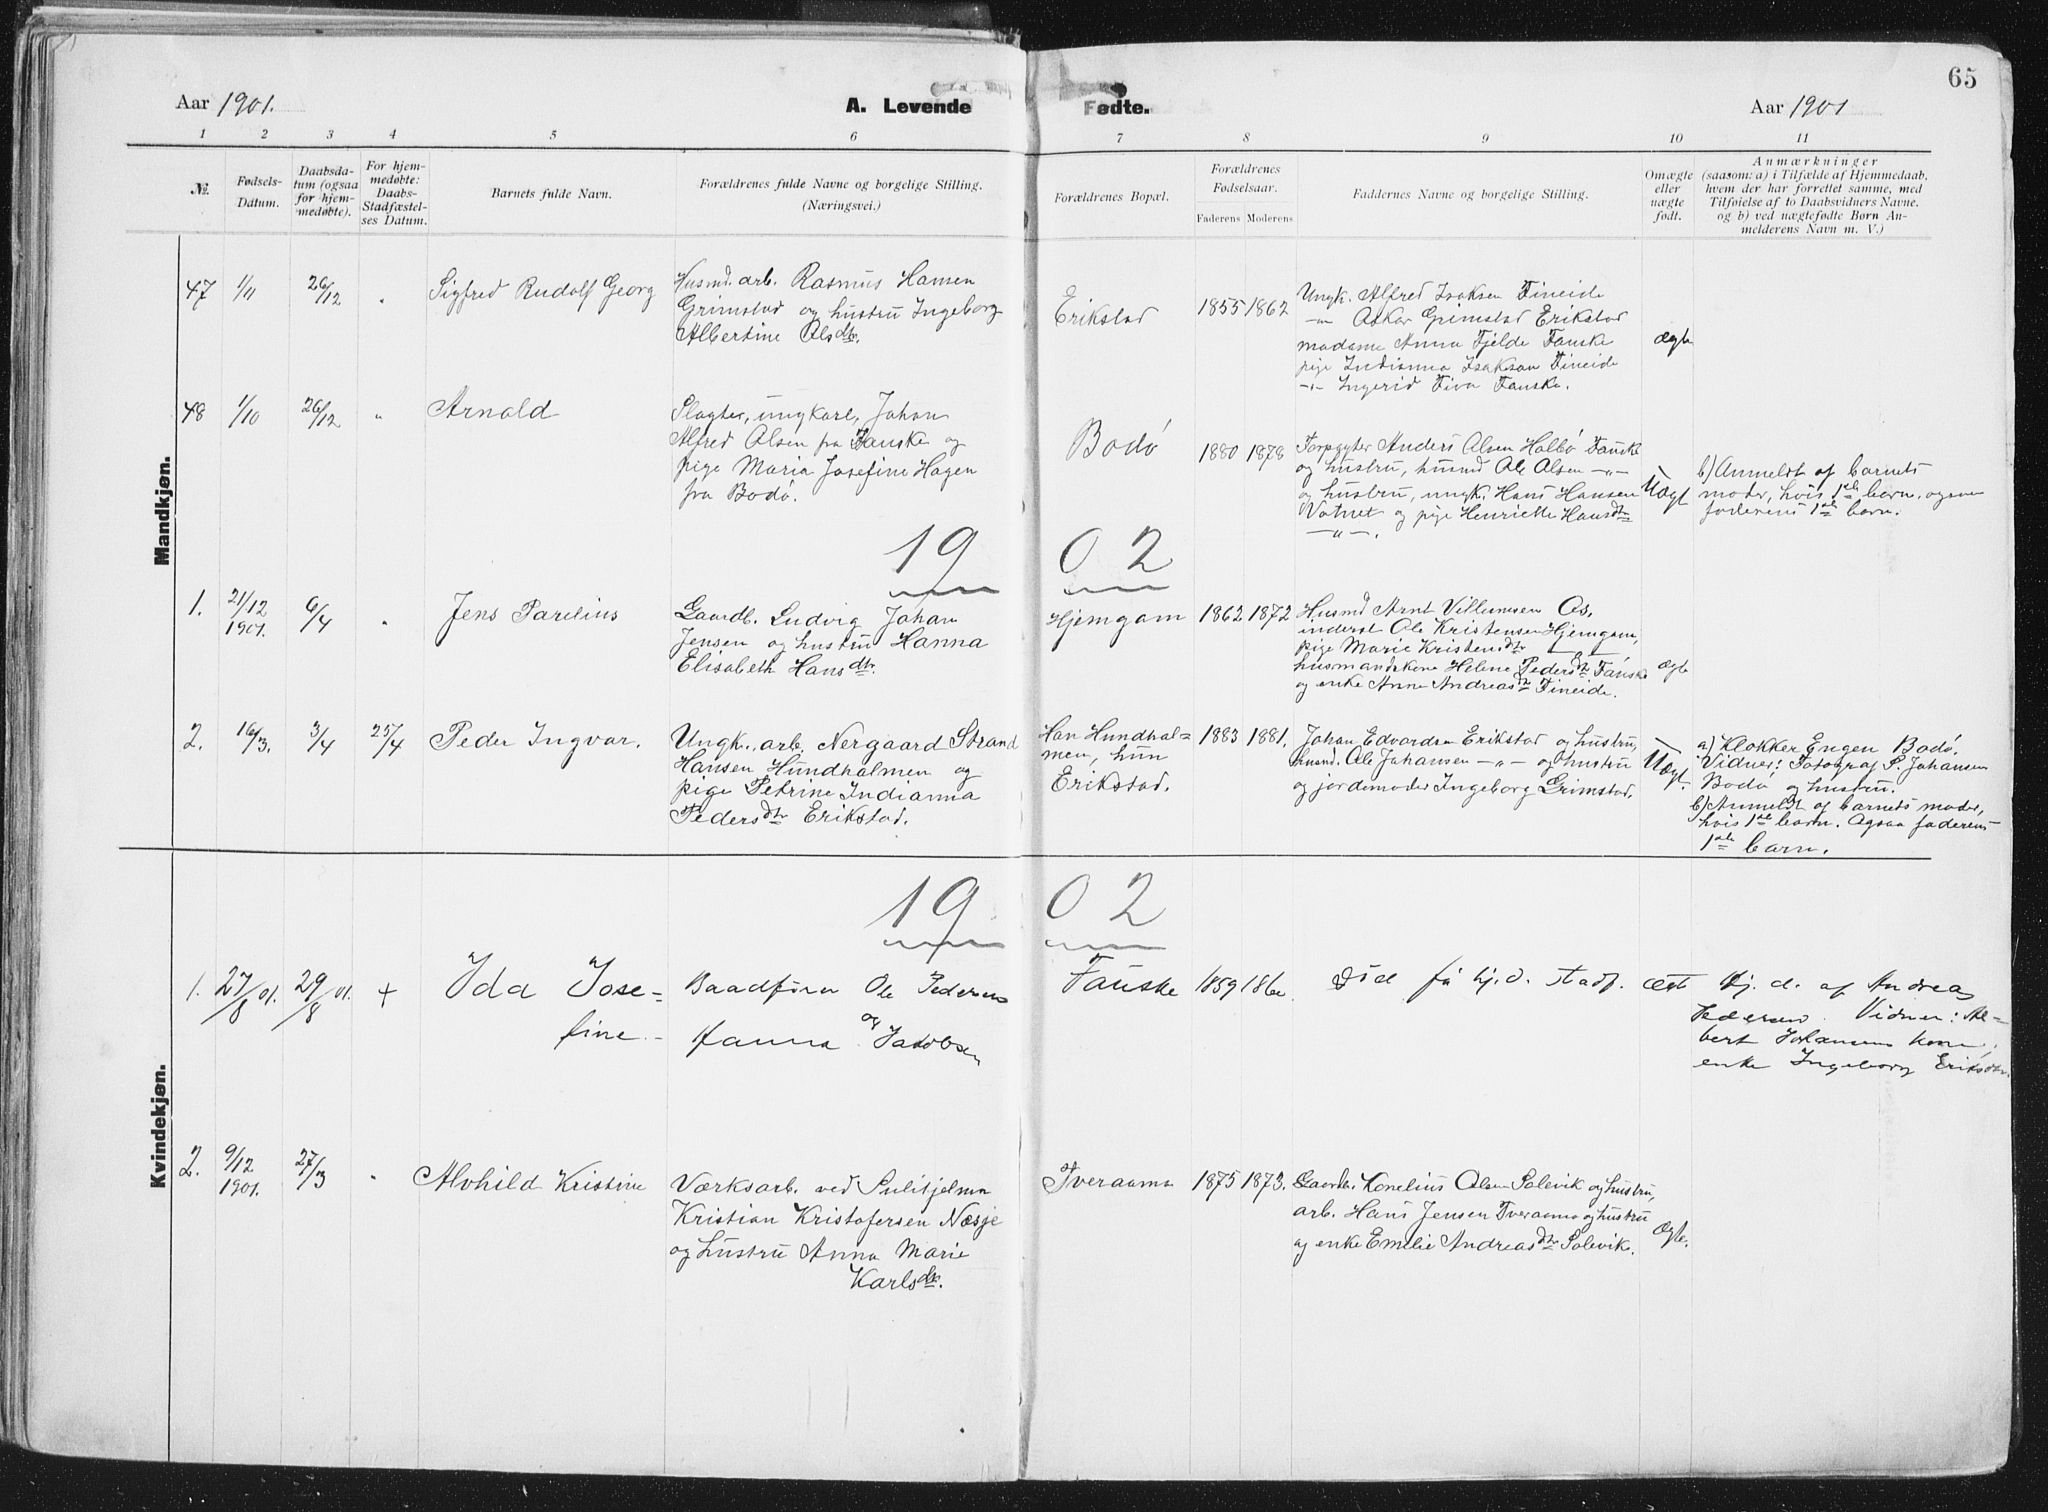 65
Aar 1901.
A. Levende Fødte.
Aar 1901
1 2 3 4 5 6 7 8 9 10 11
№
Fødsels-
Datum.
Daabsda-
tum (ogsaa
for hjem-
medøbte).
For hjem-
medøbte:
Daabs-
Stadfæstel-
ses Datum.
Barnets fulde Navn.
Forældrenes fulde Navne og borgelige Stilling.
(Næringsvei.)
Forældrenes Bopæl.
Forældrenes
Fødselsaar.
Faderens Moderens
Faddernes Navne og borgelige Stilling.
Omægte
eller
uægte
født.
Anmærkninger
(saasom: a) i Tilfælde af Hjemmedaab,
hvem der har forrettet samme, med
Tilføielse af to Daabsvidners Navne.
og b) ved uægtefødte Børn An-
melderens Navn m. V.)
Mandkjøn.
47 1/11 26/12 "
Sigfred Rudolf Georg
Husmd. arb. Rasmus Hansen
Grimstad og hustru Ingeborg
Albertine Olsdtr.
Erikstad
1855 1862
Ungk. Alfred Isaksen Fineide
—"— Oskar Grimstad Erikstad
madame Anna Fjelde Fauske
pige Indianna Isaksen Fineide
—"— Ingerid Fauske.
ægte
48 1/10 26/12 "
Arnold
Slagter, ungkarl, Johan
Alfred Olsen fra Fauske og
pige Maria Josefine Hagen
fra Bodø.
Bodø
1880 1878
Forpagter Anders Olsen Fauske
og hustru, husmd Ole Olsen —"—
og hustru, ungk. Hans Hansen
Vatnet og pige Henriette Hansdtr
—"—.
Uægt
b) Anmeldt af barnets
moder, hvis 1ste barn, ogsaa
faderens 1ste barn.
1902
1. 21/12 1901. 6/4 "
Jens Parelius
Gaardb. Ludvig Johan
Jensen og hustru Hanna
Elisabeth Hansdtr.
Hjemgam
1862 1872
Husmd Arnt Villumsen Os,
inderst Ole Kristensen Hjemgam,
pige Marie Kristensdtr —"—
husmandskone Helene Pedersdtr Fauske
og enke Anne Andreasdtr Fineide.
ægte
2. 16/3. 3/4 25/4
Peder Ingvar.
Ungk., arb. Nergaard Strand
Hansen Hundholmen og
pige Petrine Indianna
Pedersdtr Erikstad.
Han Hundhol=
men, hun
Erikstad.
1883 1881.
Johan Edvardsen Erikstad og hustru,
husmd. Ole Johansen —"— og hustru
og jordemoder Ingeborg Grimstad.
Uægt.
a) Klokker Engen Bodø.
Vidner: Fotograf S. Johansen
Bodø og hustru.
b) Anmeldt af barnets moder,
hvis 1ste barn. Ogsaa faderens
1ste barn.
Kvindekjøn.
1902
1. 27/8 01. 29/8 01. +
Ida Jose=
fine.
Baadfører Ole Pedersen
og
Hanna Jakobsen
Fauske
1859 186
Död få hj.d. stadf.
æct
Hj. d. af Andreas
Pedersen. Vidner: Al=
bert Johansens kone,
enke Ingeborg Eriksdtr.
2. 9/12 1901. 27/3 "
Alvhild Kristine
Værksarb. ved Sulitjelma
Kristian Kristofersen Næsje
og hustru Anna Marie
Karlsdtr.
Tveraamo
1875 1873.
Gaardb. Kornelius Olsen Solevik og hustru,
arb. Hans Jensen Tveraamo og hustru
og enke Emilie Andreasdtr Solevik.
Ægte.